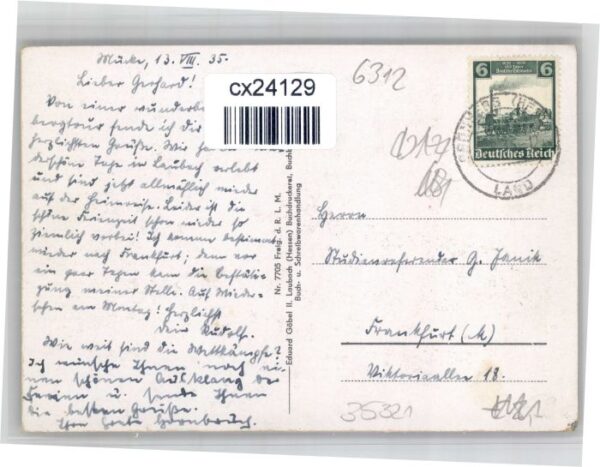 Mücke, 13. VIII. 35.
Lieber Gerhard!
Von einer wunderb
bergtour sende ich dir
herzlichsten Grüße. Wir ha
schöne Tage in Laubach verlebt
und sind jetzt allmählich wieder
auf der Heimreise. Leider ist die
schöne Ferienzeit schon wieder so
ziemlich vorbei! Ich komme bestimmt
wieder nach Frankfurt; denn vor
ein paar Tagen kam die Bestäti-
gung meiner Stelle. Auf Wieder-
sehen am Montag! Herzlichst
Dein Rudolf.
Wie weit sind die Wettkämpfe?
Ich wünsche Ihnen noch ei-
nen schönen Ausklang der
Ferien u. sende Ihnen
die besten Grüße.
Ihre Grete
cx24129
Nr. 7705 Freig. d. R. L. M.
Eduard Göbel II. Laubach (Hessen) Buchdruckerei, Buchb
Buch- u. Schreibwarenhandlung
6312
6 6
Deutsches Reich
LAND
Herrn
Studienreferendar G. Janik
Frankfurt (M)
Viktoriaallee 18.
35321